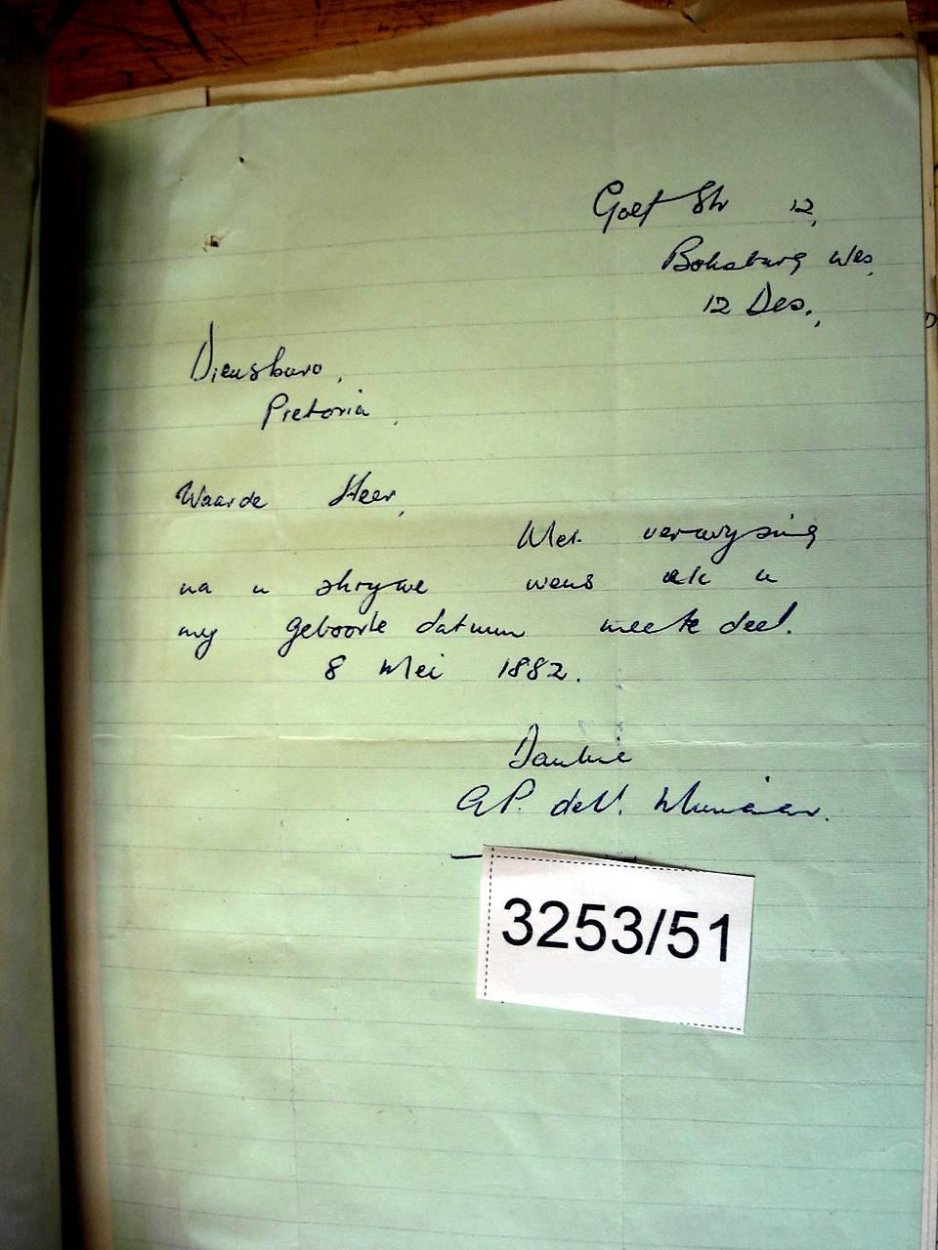 Golf Str 12,
Boksburg Wes,
12 Des.,
Diensburo,
Pretoria,
Waarde Heer,
Met verwysing
na u skrywe wens ek u
my geboorte datum mee te deel.
8 Mei 1882.
Dankie
P. de V.
3253/51